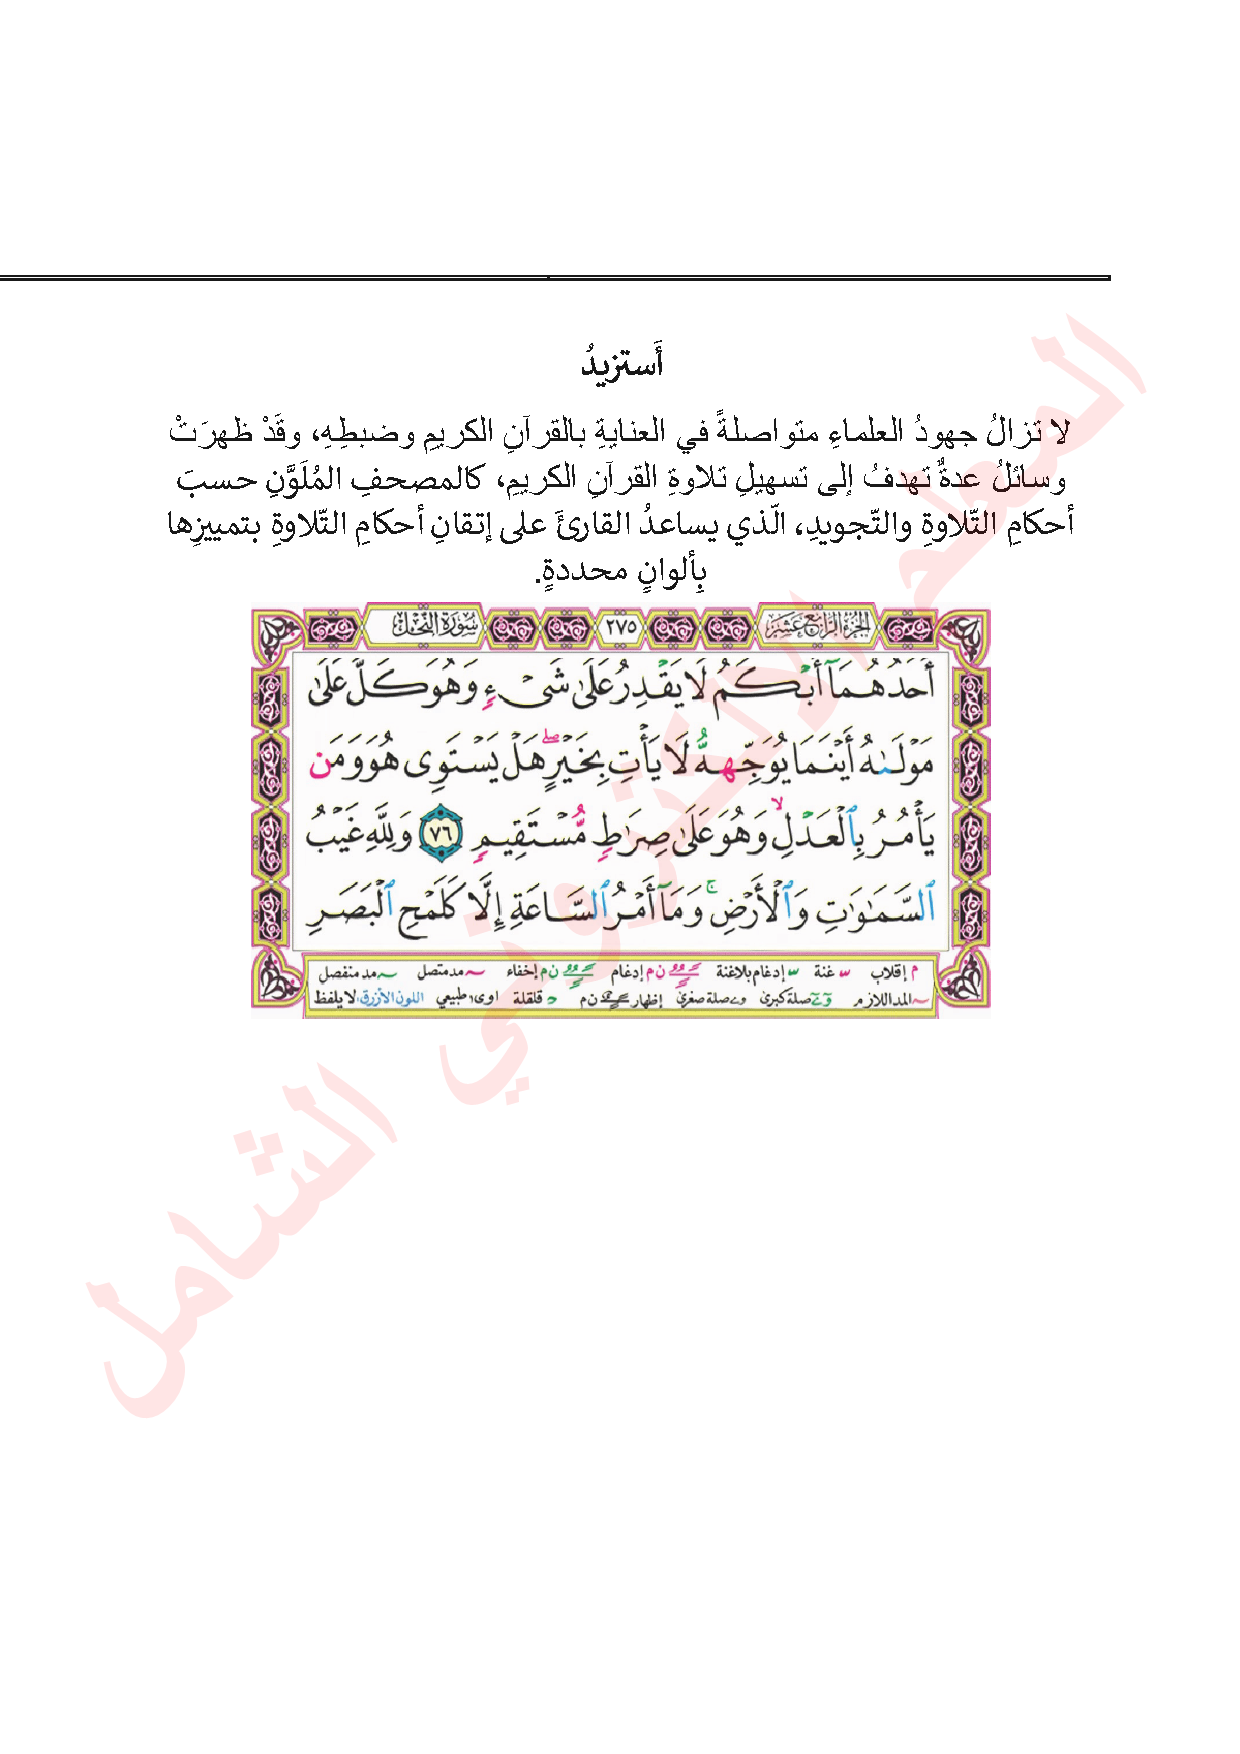 أَستزيدُ
لا تزالُ جهودُ العلماءِ متواصلةً في العنايةِ بالقرآنِ الكريمِ وضبطِهِ، وقَدْ ظهرَتْ
وسائلُ عدةٌ تهدفُ إلى تسهيلِ تلاوةِ القرآنِ الكريمِ، كالمصحفِ المُلَوَّنِ حسبَ
أحكامِ التّلاوةِ والتّجويدِ، الّذي يساعدُ القارئَ على إتقانِ أحكامِ التّلاوةِ بتمييزِها
بِألوانٍ محددةٍ.
الجزء الرابع عشر ٢٧٥ سورة النحل
أَحَدُهُمَآ أَبْكَمُ لَا يَقْدِرُ عَلَىٰ شَىْءٍ وَهُوَ كَلٌّ عَلَىٰ
مَوْلَىٰهُ أَيْنَمَا يُوَجِّههُّ لَا يَأْتِ بِخَيْرٍ ۖ هَلْ يَسْتَوِى هُوَ وَمَن
يَأْمُرُ بِٱلْعَدْلِ ۙ وَهُوَ عَلَىٰ صِرَٰطٍ مُّسْتَقِيمٍ ٧٦ وَلِلَّهِ غَيْبُ
ٱلسَّمَٰوَٰتِ وَٱلْأَرْضِ ۚ وَمَآ أَمْرُ ٱلسَّاعَةِ إِلَّا كَلَمْحِ ٱلْبَصَرِ
م إقلاب غنة إدغام بلاغنة ن م إدغام ن م إخفاء مد متصل مد منفصل
المد اللازم صلة كبرى صلة صغرى إظهار ن م قلقلة اوى طبيعي اللون الأزرق لا يلفظ
المعلم الالكتروني الشامل